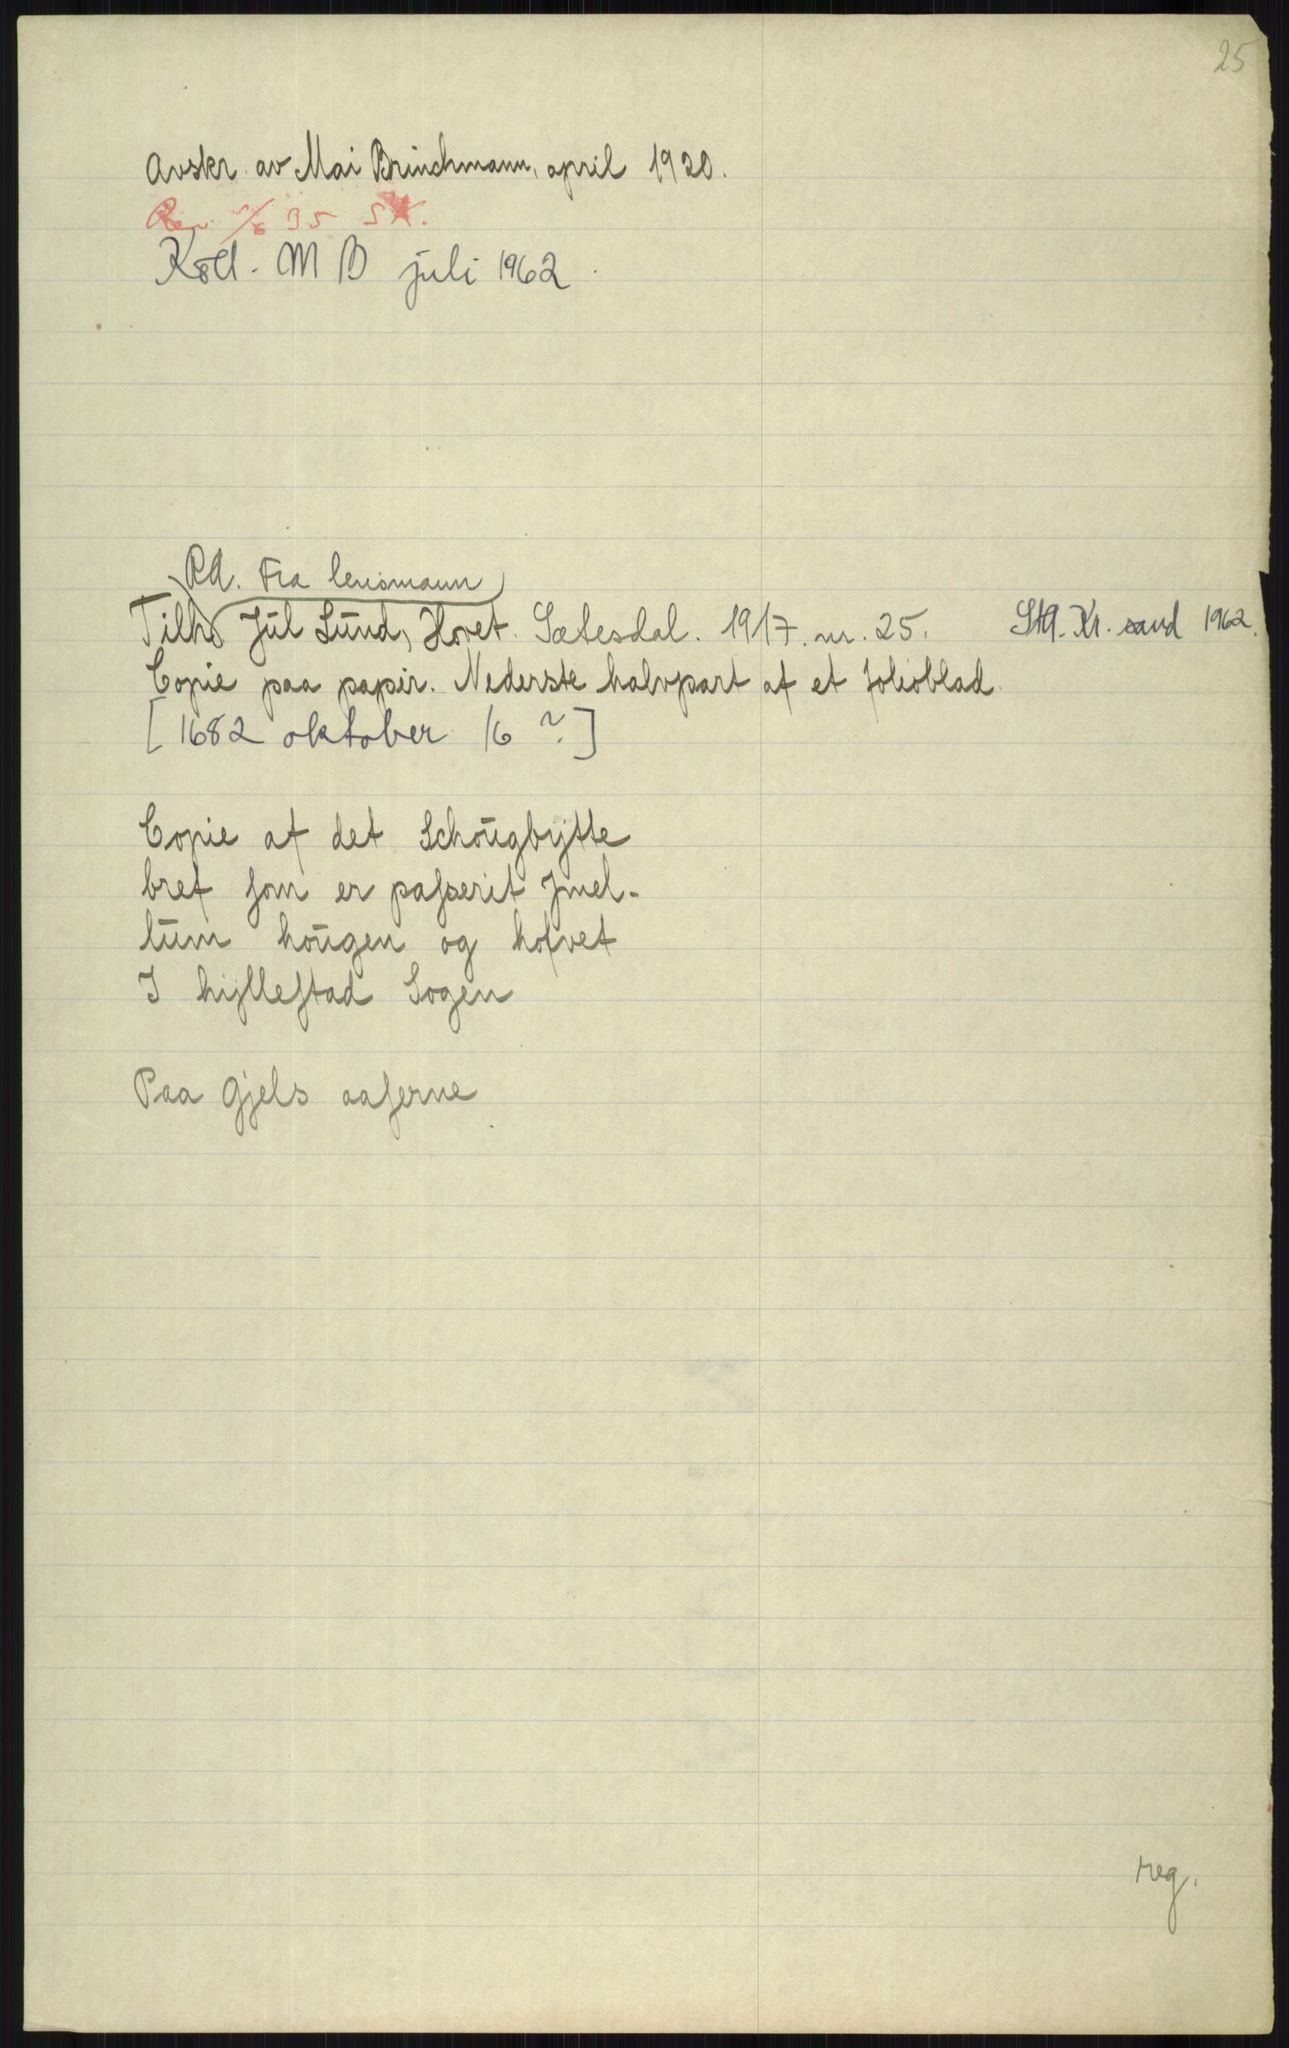 25
Avskr. av Mai Brinchmann, april 1920.
35 SK.
Koll. M B juli 1962.
RA. Fra lensmann
Tilh. Jūl Lūnd, Hovet. Sætesdal. 1917. nr. 25. StA. Kr. sand 1962.
Copie paa papir. Nederste halvpart af et folioblad.
[1682 oktober 16 ?]
Copie af det Schoūgbÿtte
bref som er passerit Jmel-
lūm hoūgen og hofvet
I hÿllestad Sogen
Paa Gjels aaserne
reg.